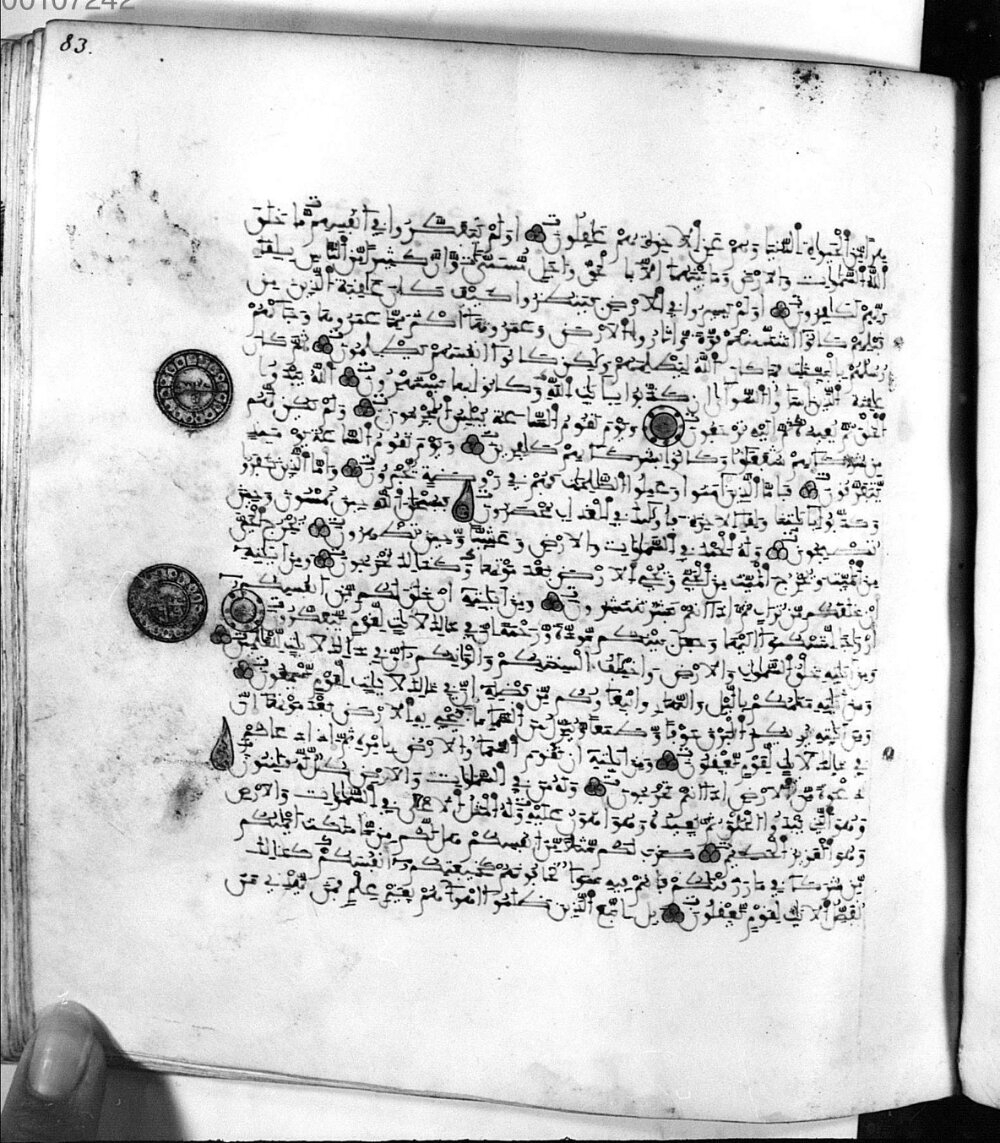 83.
هرا من الحيوة الدنيا وهم عن الاخرة هم غافلون اولم يتفكروا في انفسهم ما خلق
الله السماوات والارض وما بينهما الا بالحق واجل مسمى وان كثيرا من الناس بلقاء
ربهم لكافرون اولم يسيروا في الارض فينظروا كيف كان عاقبة الذين من
قبلهم كانوا اشد منهم قوة واثاروا الارض وعمروها اكثر مما عمروها وجاءتهم
رسلهم بالبينات فما كان الله ليظلمهم ولكن كانوا انفسهم يظلمون ثم كان
عاقبة الذين اساءوا السوأى ان كذبوا بايات الله وكانوا بها يستهزءون الله يبدؤا
الخلق ثم يعيده ثم اليه ترجعون ويوم تقوم الساعة يبلس المجرمون ولم يكن لهم
من شركائهم شفعاء وكانوا بشركائهم كافرين ويوم تقوم الساعة يومئذ
يتفرقون فاما الذين امنوا وعملوا الصالحات فهم في روضة يحبرون واما الذين كفروا
وكذبوا باياتنا ولقاء الاخرة فاولئك في العذاب محضرون فسبحان الله حين تمسون وحين
تصبحون وله الحمد في السماوات والارض وعشيا وحين تظهرون يخرج الحي
من الميت ويخرج الميت من الحي ويحي الارض بعد موتها وكذلك تخرجون ومن اياته
ان خلقكم من تراب ثم اذا انتم بشر تنتشرون ومن اياته ان خلق لكم من انفسكم
ازواجا لتسكنوا اليها وجعل بينكم مودة ورحمة ان في ذلك لايات لقوم يتفكرون
ومن اياته خلق السماوات والارض واختلاف السنتكم والوانكم ان في ذلك لايات للعالمين
ومن اياته منامكم باليل والنهار وابتغاؤكم من فضله ان في ذلك لايات لقوم يسمعون
ومن اياته يريكم البرق خوفا وطمعا وينزل من السماء ماء فيحي به الارض بعد موتها ان
في ذلك لايات لقوم يعقلون ومن اياته ان تقوم السماء والارض بامره ثم اذا دعاكم
دعوة من الارض اذا انتم تخرجون وله من في السماوات والارض كل له قانتون
وهو الذي يبدؤا الخلق ثم يعيده وهو اهون عليه وله المثل الاعلى في السماوات والارض
وهو العزيز الحكيم ضرب لكم مثلا من انفسكم هل لكم من ما ملكت ايمانكم
من شركاء في ما رزقناكم فانتم فيه سواء تخافونهم كخيفتكم انفسكم كذلك
نفصل الايات لقوم يعقلون بل اتبع الذين ظلموا اهواءهم بغير علم فمن يهدي من